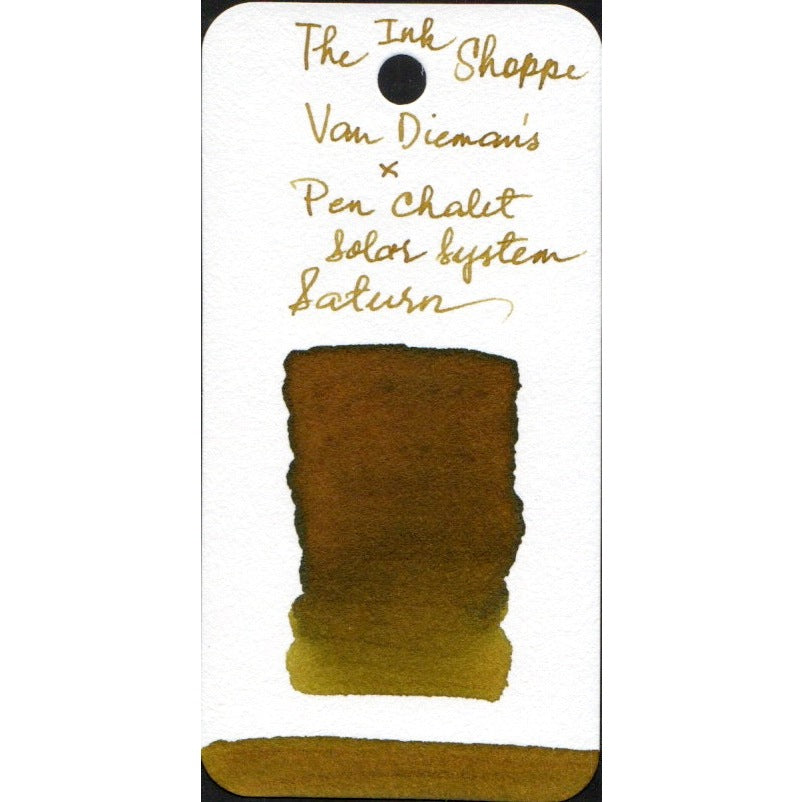 The Ink Shoppe
Van Dieman's
x
Pen Chalet
Solar System
Saturn